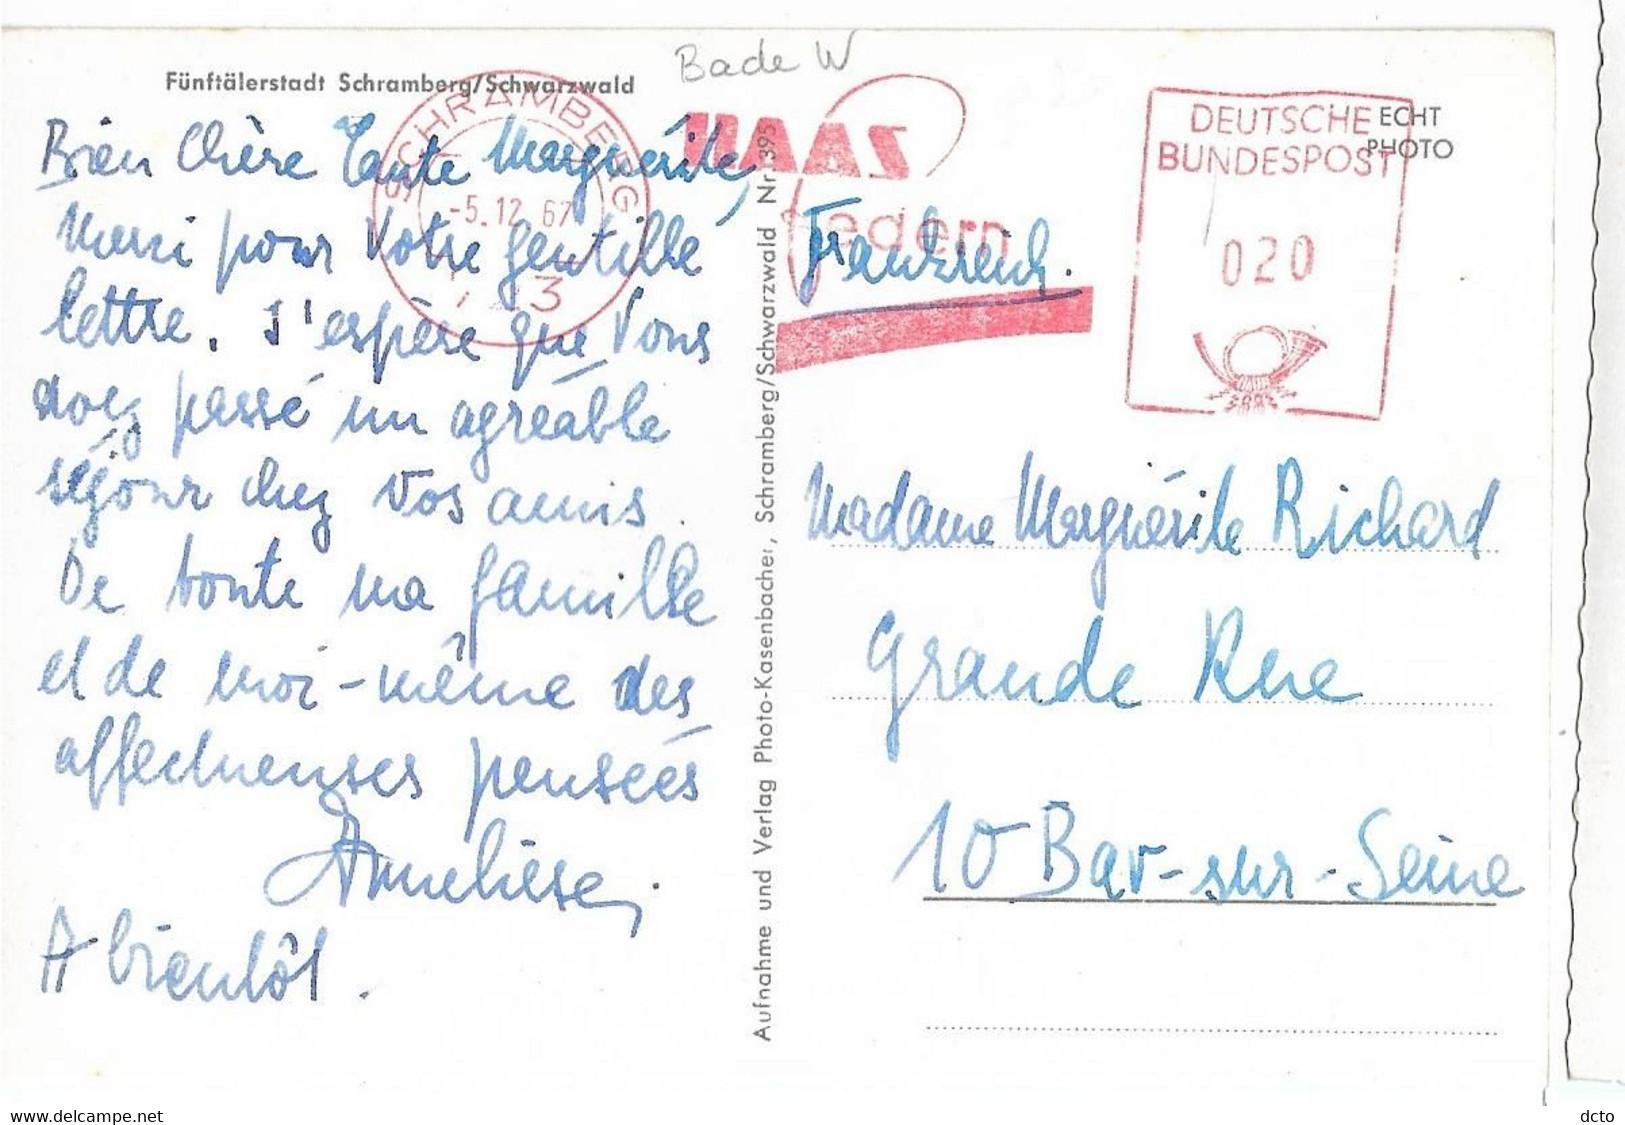 Bade W
Fünftälerstadt Schramberg/Schwarzwald
Bien Chère Tante Marguérite,
Merci pour Votre gentille
lettre. J'espère que Vous
avez passé un agréable
séjour chez Vos amis.
De toute ma famille
et de moi-même des
affectueuses pensées
Anneliese.
A bientôt.
SCHRAMBERG
-5.12.67
713
HAAS
federn
DEUTSCHE
BUNDESPOST
020
ECHT
PHOTO
Aufnahme und Verlag Photo-Kasenbacher, Schramberg/Schwarzwald Nr 395
Frankreich.
Madame Marguérite Richard
Grande Rue
10 Bar-sur-Seine
www.delcampe.net
dcto